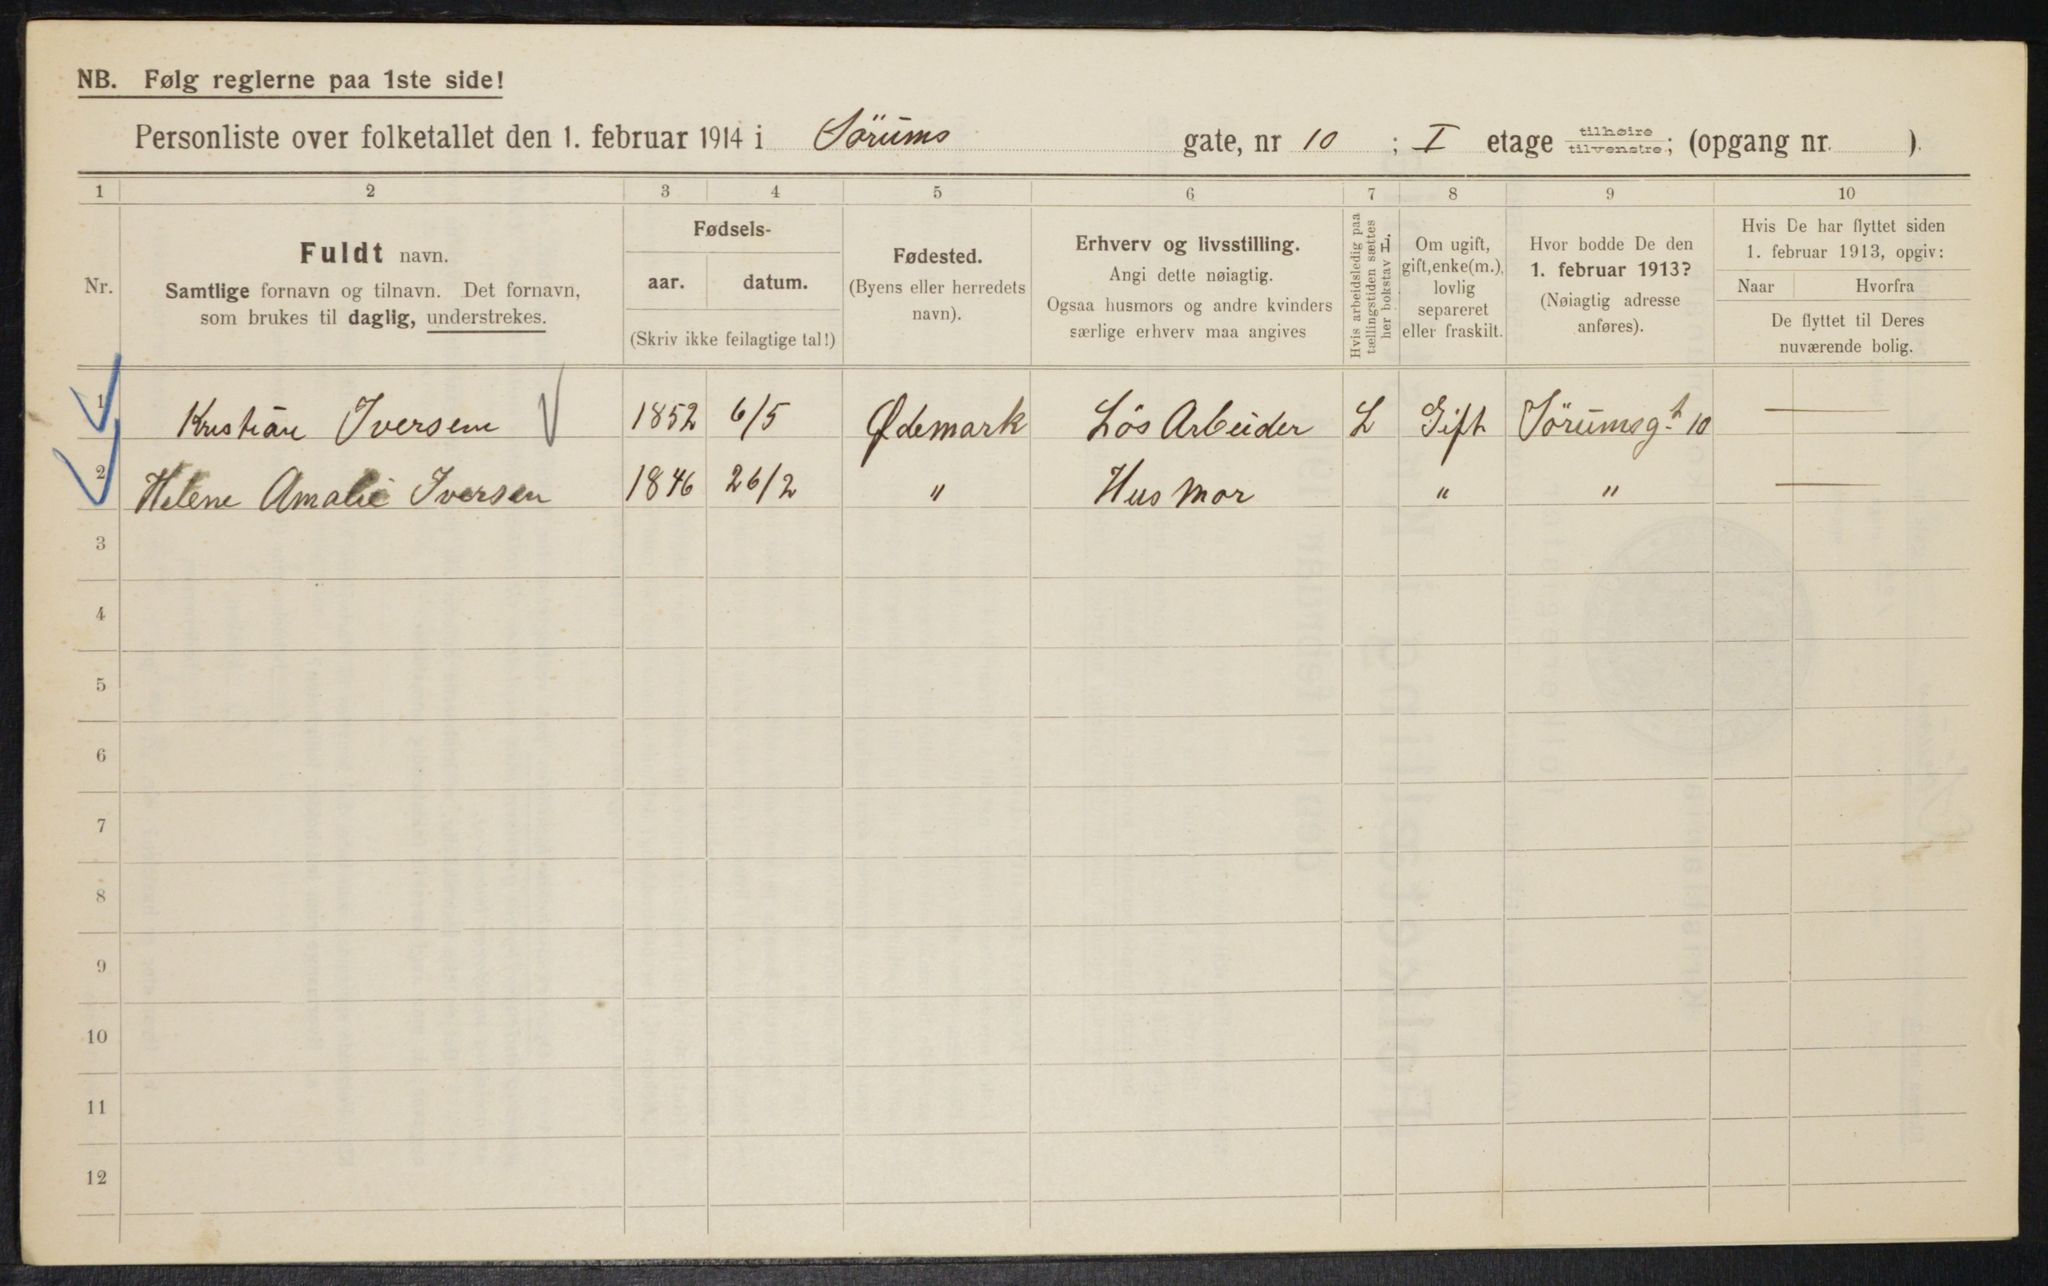 NB. Følg reglerne paa 1ste side!
Personliste over folketallet den 1. februar 1914 i Sörums gate, nr 10 ; I etage tilhøire tilvenstre; (opgang nr. ).
1 2 3 4 5 6 7 8 9 10
Nr.
Fuldt navn.
Samtlige fornavn og tilnavn. Det fornavn,
som brukes til daglig, understrekes.
Fødsels-
aar. datum.
(Skriv ikke feilagtige tal!)
Fødested.
(Byens eller herredets
navn).
Erhverv og livsstilling.
Angi dette nøiagtig.
Ogsaa husmors og andre kvinders
særlige erhverv maa angives
Hvis arbeidsledig paa
tællingstiden sættes
her bokstav L.
Om ugift,
gift, enke(m.),
lovlig
separeret
eller fraskilt.
Hvor bodde De den
1. februar 1913?
(Nøiagtig adresse
anføres).
Hvis De har flyttet siden
1. februar 1913, opgiv:
Naar Hvorfra
De flyttet til Deres
nuværende bolig.
1 Kristian Iversen 1852 6/5 Ødemark Lös Arbeider L Gift Sörumsgt. 10 —
2 Helene Amalie Iversen 1846 26/2 " Husmor " " —
3
4
5
6
7
8
9
10
11
12